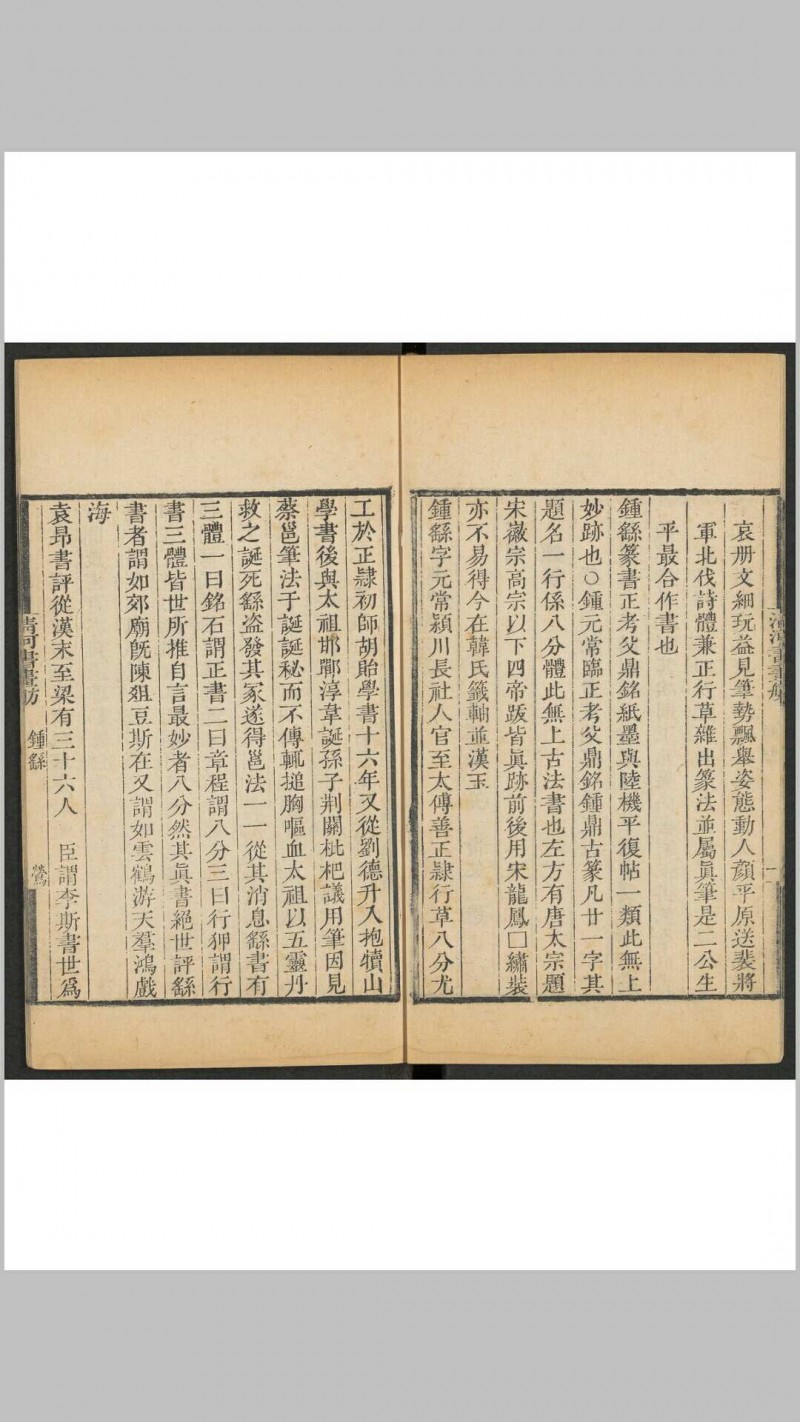 哀册文細玩益見筆勢飄舉姿態動人顔平原送裴將
軍北伐詩體兼正行草雜出篆法並屬眞筆是二公生
平最合作書也
鍾繇篆書正考父鼎銘紙墨與陸機平復帖一類此無上
妙跡也○鍾元常臨正考父鼎銘鍾鼎古篆凡廿一字其
題名一行係八分體此無上古法書也左方有唐太宗題
宋徽宗高宗以下四帝跋皆眞跡前後用宋龍鳳□繡裝
亦不易得今在韓氏籤軸並漢玉
鍾繇字元常潁川長社人官至太傅善正隷行草八分尤
工於正隷初師胡昭學書十六年又從劉德升入抱犢山
學書後與太祖邯鄲淳韋誕孫子荆關枇杷議用筆因見
蔡邕筆法于誕誕秘而不傳輒搥胸嘔血太祖以五靈丹
救之誕死繇盗發其冢遂得邕法一一從其消息繇書有
三體一曰銘石謂正書二曰章程謂八分三曰行狎謂行
書三體皆世所推自言最妙者八分然其眞書絕世評繇
書者謂如郊廟旣陳俎豆斯在又謂如雲鶴游天羣鴻戲
海
袁昂書評從漢末至梁有三十六人 臣謂李斯書世爲
清河書畫舫 鍾繇 鶯